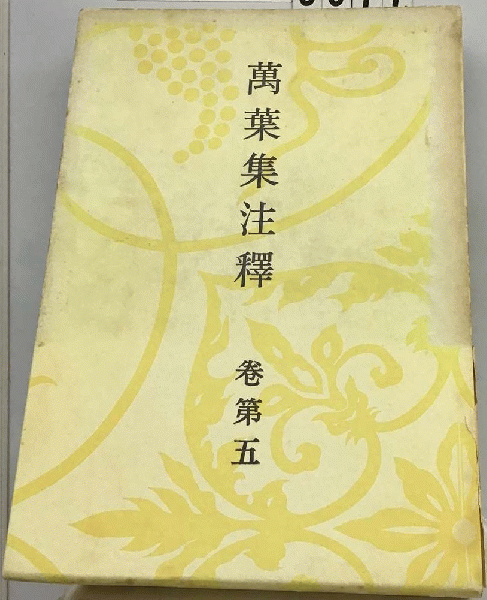 萬葉集注釋
卷第五